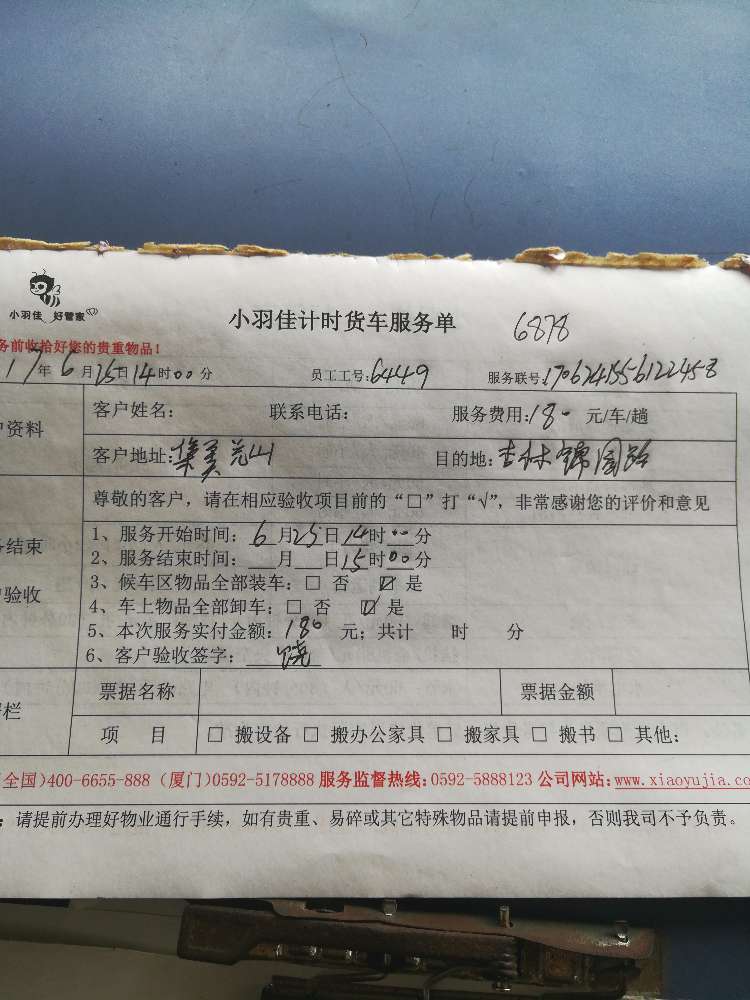 小羽佳 好管家
小羽佳计时货车服务单 6878
务前收拾好您的贵重物品!
17年6月25日14时00分 员工工号:6449 服务联号:1706241556122458
户资料
客户姓名: 联系电话: 服务费用:180 元/车/趟
客户地址:集美兑山 目的地:杏林锦园路
尊敬的客户，请在相应验收项目前的“□”打“√”，非常感谢您的评价和意见
务结束
户验收
1、服务开始时间:6月25日14时00分
2、服务结束时间: 月 日15时00分
3、候车区物品全部装车:□ 否 ☑ 是
4、车上物品全部卸车:□ 否 ☑ 是
5、本次服务实付金额:180 元;共计 时 分
6、客户验收签字:饶
栏
票据名称 票据金额
项 目 □ 搬设备 □ 搬办公家具 □ 搬家具 □ 搬书 □ 其他:
(全国)400-6655-888 (厦门)0592-5178888 服务监督热线:0592-5888123 公司网站:www.xiaoyujia.co
:请提前办理好物业通行手续，如有贵重、易碎或其它特殊物品请提前申报，否则我司不予负责。